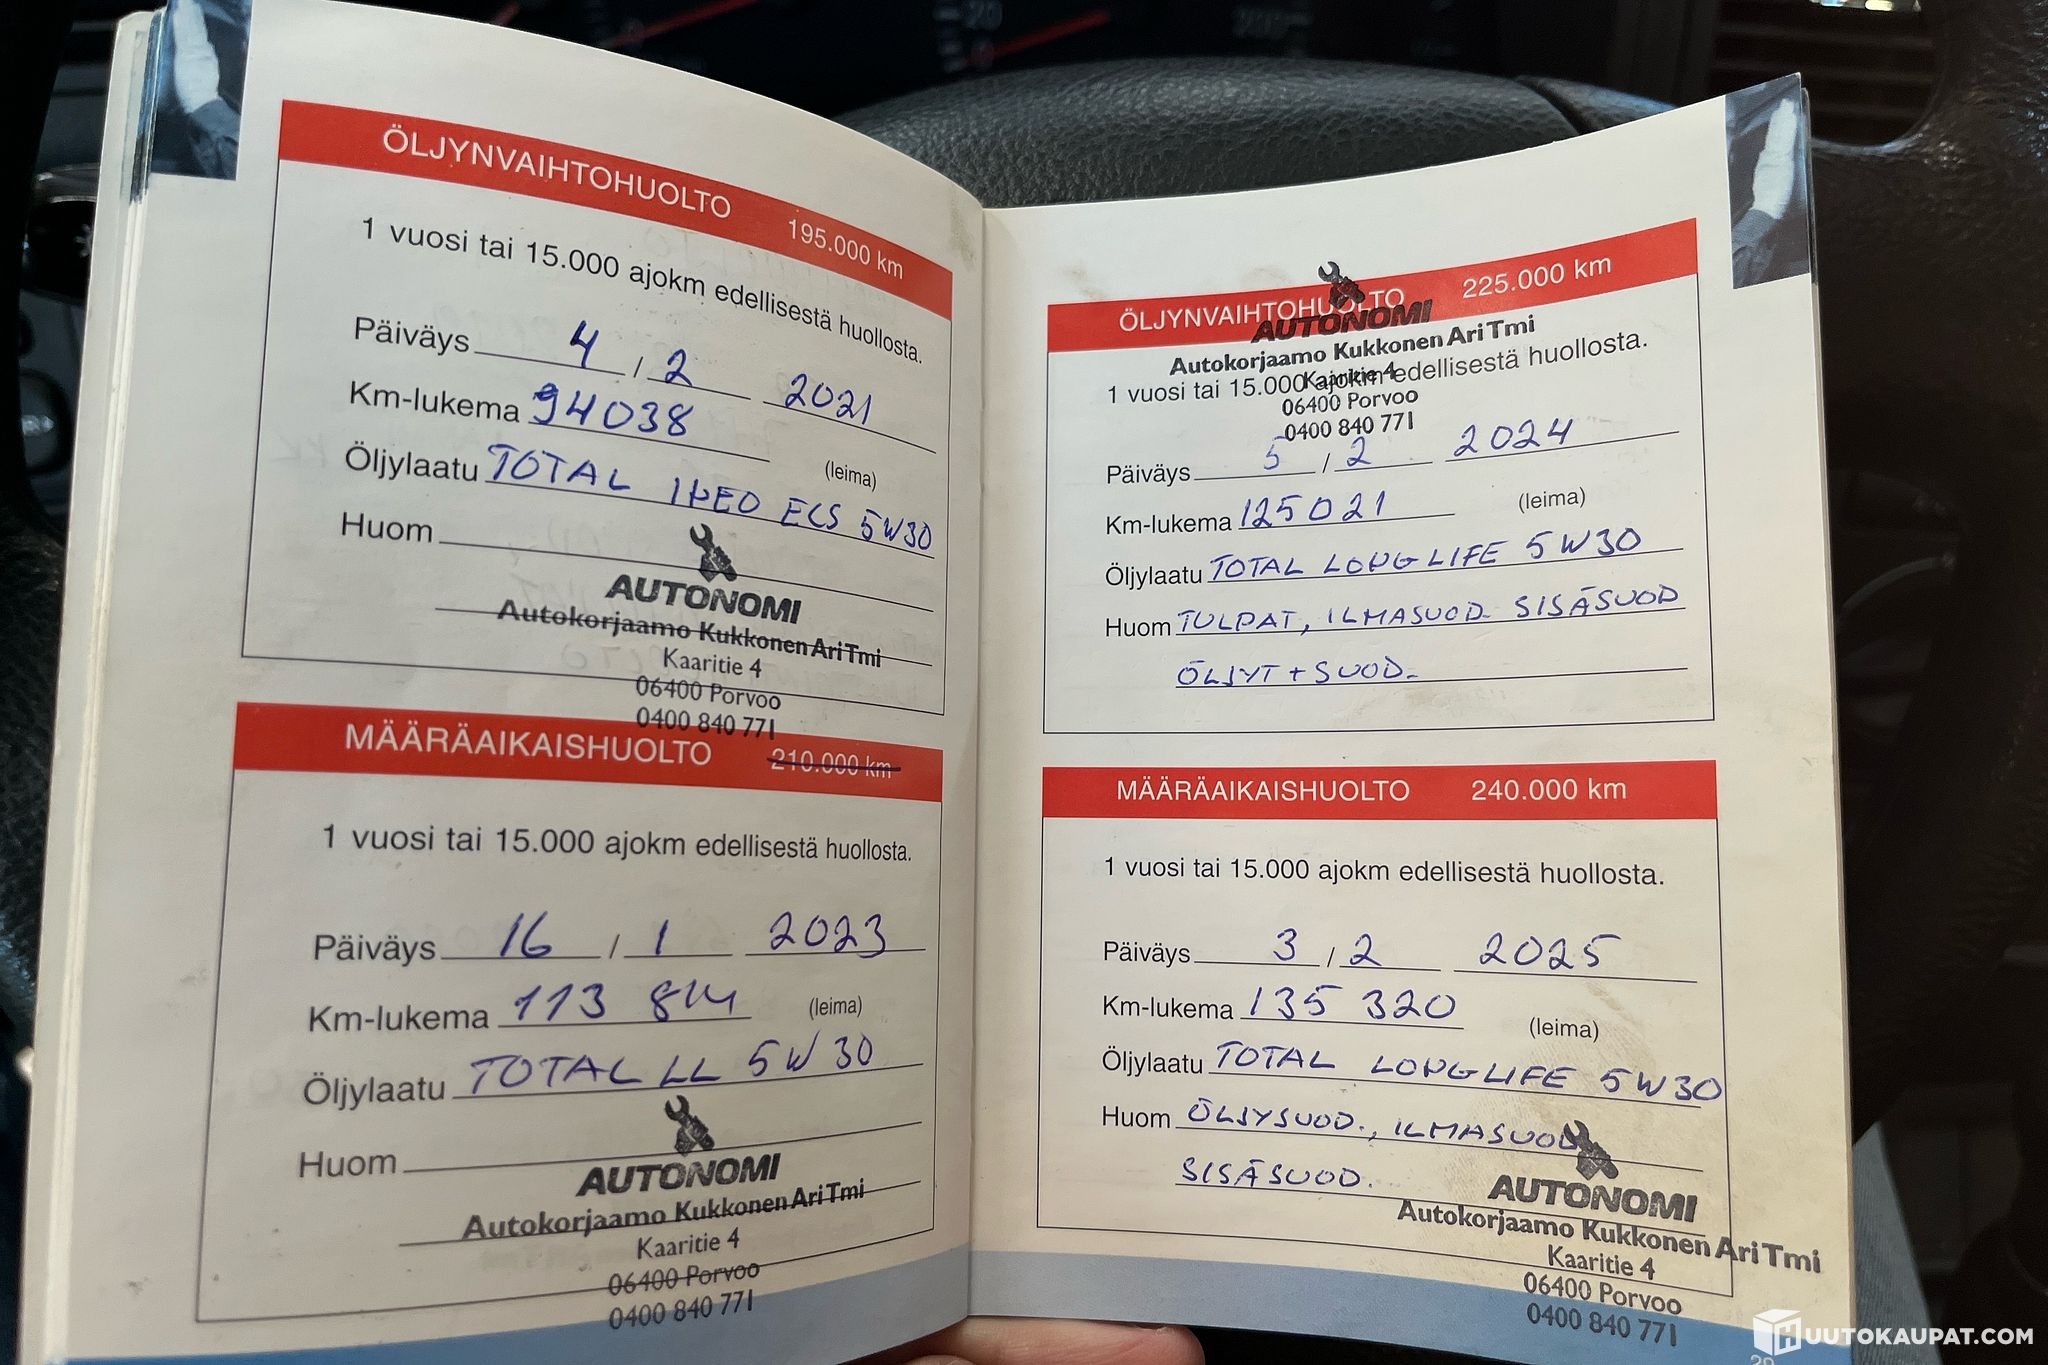 ÖLJYNVAIHTOHUOLTO 195.000 km
1 vuosi tai 15.000 ajokm edellisestä huollosta.
Päiväys 4 / 2 2021
Km-lukema 94038
(leima)
Öljylaatu TOTAL INEO ECS 5W30
Huom
AUTONOMI
Autokorjaamo Kukkonen Ari Tmi
Kaaritie 4
06400 Porvoo
0400 840 771
MÄÄRÄAIKAISHUOLTO 210.000 km
1 vuosi tai 15.000 ajokm edellisestä huollosta.
Päiväys 16 / 1 2023
Km-lukema 113 814
(leima)
Öljylaatu TOTAL LL 5W30
Huom
AUTONOMI
Autokorjaamo Kukkonen Ari Tmi
Kaaritie 4
06400 Porvoo
0400 840 771
ÖLJYNVAIHTOHUOLTO 225.000 km
AUTONOMI
Autokorjaamo Kukkonen Ari Tmi
1 vuosi tai 15.000 ajokm edellisestä huollosta.
Kaaritie 4
06400 Porvoo
0400 840 771
Päiväys 5 / 2 2024
Km-lukema 125021
(leima)
Öljylaatu TOTAL LONGLIFE 5W30
Huom TULPAT, ILMASUOD. SISÄSUOD
ÖLJYT + SUOD.
MÄÄRÄAIKAISHUOLTO 240.000 km
1 vuosi tai 15.000 ajokm edellisestä huollosta.
Päiväys 3 / 2 2025
Km-lukema 135 320
(leima)
Öljylaatu TOTAL LONGLIFE 5W30
Huom ÖLJYSUOD., ILMASUOD
SISÄSUOD.
AUTONOMI
Autokorjaamo Kukkonen Ari Tmi
Kaaritie 4
06400 Porvoo
0400 840 771
HUUTOKAUPAT.COM